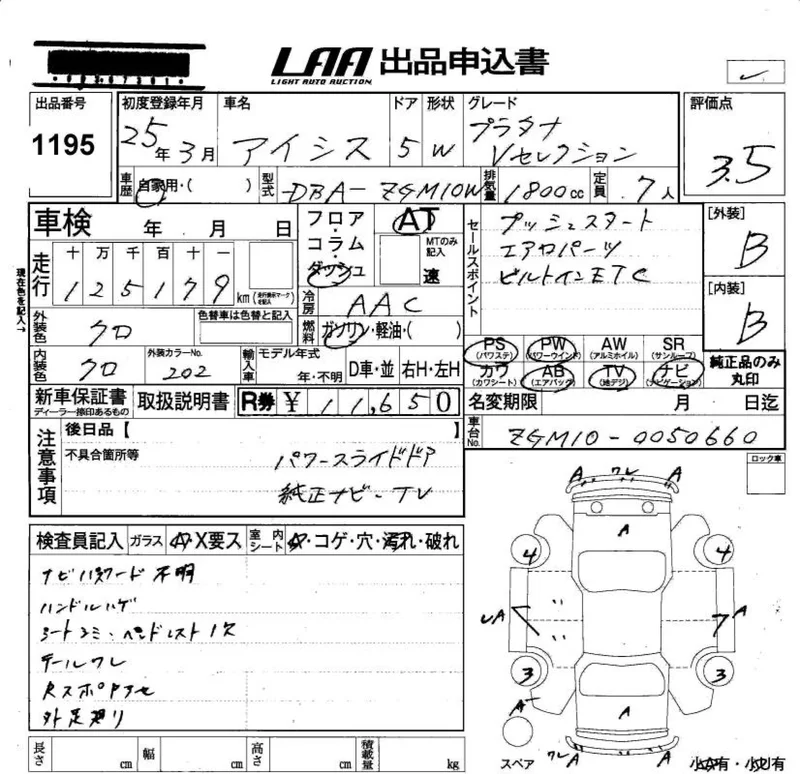 LAA 出品申込書
LIGHT AUTO AUCTION
出品番号
1195
初度登録年月
25年3月
車名
アイシス
ドア
5
形状
W
グレード
プラタナ
Vセレクション
評価点
3.5
車歴
自家用・( )
型式
DBA-ZGM10W
排気量
1800cc
定員
7人
車検 年 月 日
フロア・
コラム・
ダッシュ
AT
MTのみ記入
速
セールスポイント
プッシュスタート
エアロパーツ
ビルトインETC
[外装]
B
[内装]
B
現在色を記入→
走行
十 万 千 百 十 一
1 2 5 1 7 9
km
(走行表示マークを記入)
冷房
AAC
燃料
ガソリン・軽油・( )
外装色
クロ
色替車は色替と記入
内装色
クロ
外装カラーNo.
202
輸入車
モデル年式
年・不明
D車・並
右H・左H
PS
(パワステ)
PW
(パワーウインド)
AW
(アルミホイル)
SR
(サンルーフ)
カワ
(カワシート)
AB
(エアバック)
TV
(地デジ)
ナビ
(ナビゲーション)
純正品のみ
丸印
新車保証書
ディーラー捺印あるもの
取扱説明書
R券 ¥ 11,650
名変期限 月 日迄
車台No.
ZGM10-0050660
注意事項
後日品【 】
不具合箇所等
パワースライドドア
純正ナビ-TV
ロック車
検査員記入
ガラス
A・X要ス
室内シート
A・コゲ・穴・汚れ・破れ
ナビパスワード不明
ハンドルハゲ
シートシミ・ヘッドレスト1欠
テールワレ
外足廻り
A ワレ A
A
4
4
A
A
3
3
A
A
ワレ
A A
スペア
長さ cm
幅 cm
高さ cm
積載量 kg